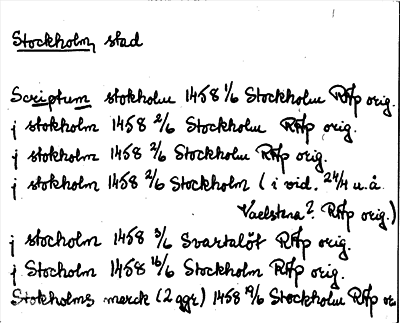 Stockholm, stad
Scriptum stokholm 1458 1/6 Stockholm RAp orig.
j stokholm 1458 2/6 Stockholm RAp orig.
j stokholm 1458 2/6 Stockholm RAp orig.
j stokholm 1458 2/6 Stockholm (i vid. 24/4 u.å.
Vadstena? RAp orig.)
j stocholm 1458 3/6 Svartalöt RAp orig.
j Stocholm 1458 16/6 Stockholm RAp orig.
Stokholms merck (2 ggr) 1458 19/6 Stockholm RAp